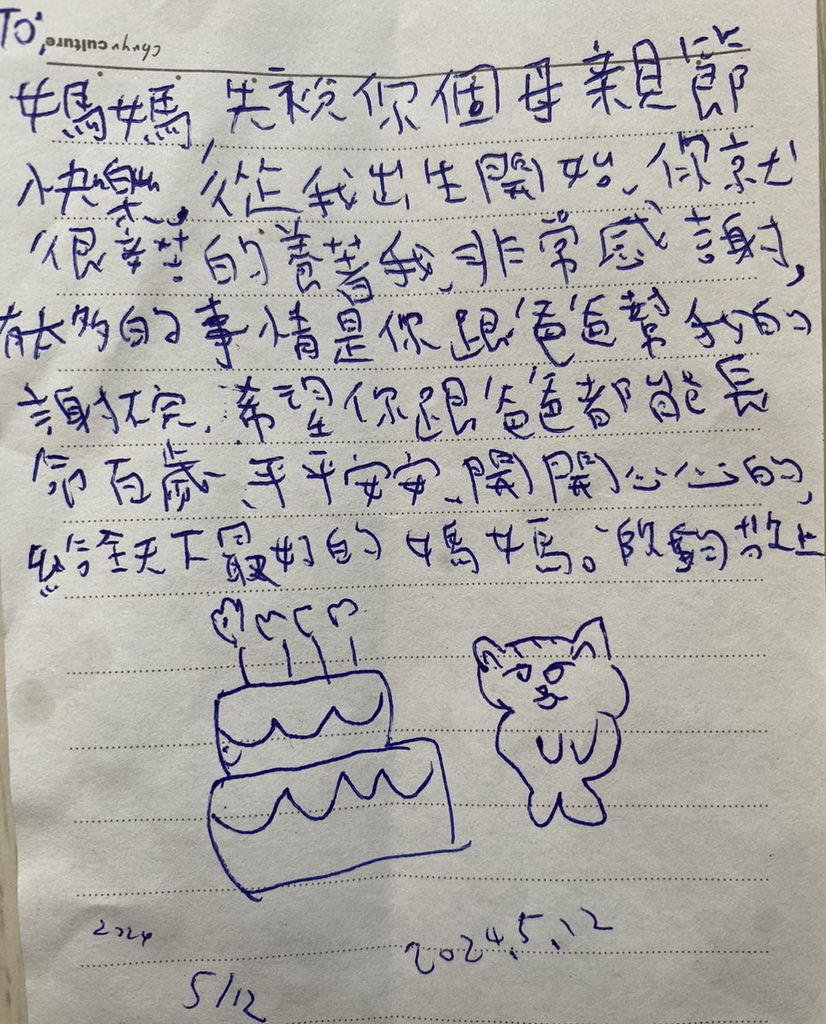 To,
chyry culture
媽媽,先祝你個母親節
快樂,從我出生開始,你就
很辛苦的養著我,非常感謝,
有太多的事情是你跟爸爸幫我的
謝不完,希望你跟爸爸都能長
命百歲,平平安安,開開心心的,
給全天下最好的媽媽。敬上
2024
2024.5.12
5/12